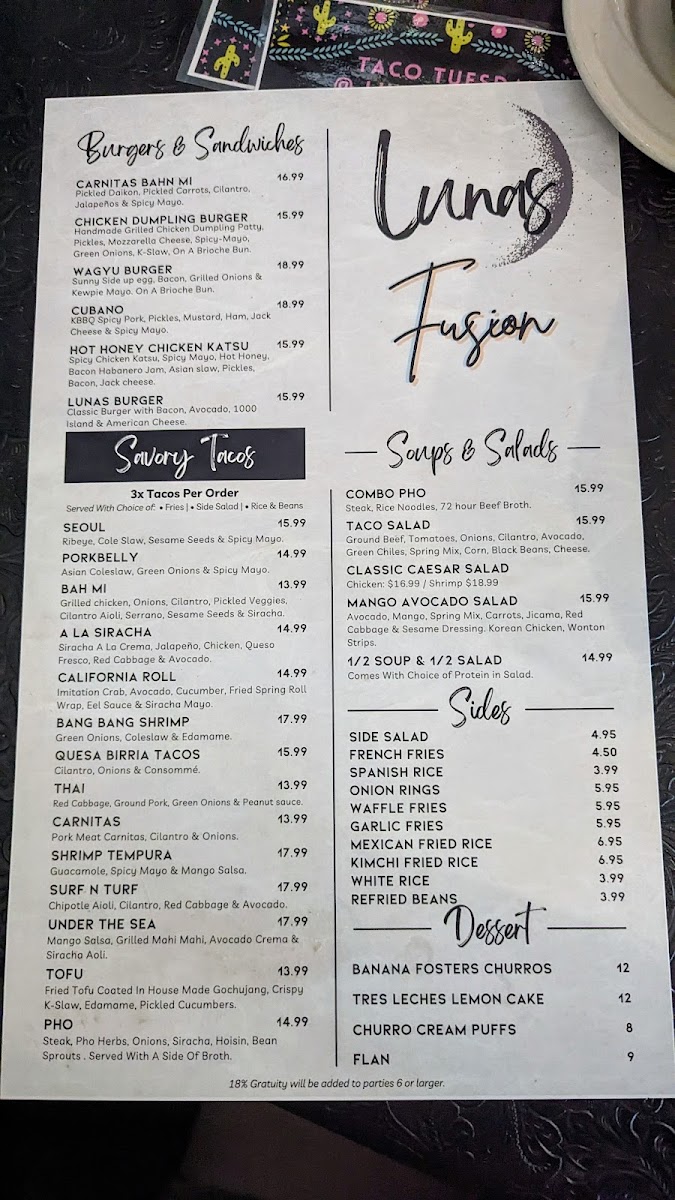 TACO TUES
@
Burgers & Sandwiches
CARNITAS BAHN MI 16.99
Pickled Daikon, Pickled Carrots, Cilantro,
Jalapeños & Spicy Mayo.
CHICKEN DUMPLING BURGER 15.99
Handmade Grilled Chicken Dumpling Patty,
Pickles, Mozzarella Cheese, Spicy-Mayo,
Green Onions, K-Slaw, On A Brioche Bun.
WAGYU BURGER 18.99
Sunny Side up egg, Bacon, Grilled Onions &
Kewpie Mayo. On A Brioche Bun.
CUBANO 18.99
KBBQ Spicy Pork, Pickles, Mustard, Ham, Jack
Cheese & Spicy Mayo.
HOT HONEY CHICKEN KATSU 15.99
Spicy Chicken Katsu, Spicy Mayo, Hot Honey,
Bacon Habanero Jam, Asian slaw, Pickles,
Bacon, Jack cheese.
LUNAS BURGER 15.99
Classic Burger with Bacon, Avocado, 1000
Island & American Cheese.
Savory Tacos
3x Tacos Per Order
Served With Choice of: • Fries | • Side Salad | • Rice & Beans
SEOUL 15.99
Ribeye, Cole Slaw, Sesame Seeds & Spicy Mayo.
PORKBELLY 14.99
Asian Coleslaw, Green Onions & Spicy Mayo.
BAH MI 13.99
Grilled chicken, Onions, Cilantro, Pickled Veggies,
Cilantro Aioli, Serrano, Sesame Seeds & Siracha.
A LA SIRACHA 14.99
Siracha A La Crema, Jalapeño, Chicken, Queso
Fresco, Red Cabbage & Avocado.
CALIFORNIA ROLL 14.99
Imitation Crab, Avocado, Cucumber, Fried Spring Roll
Wrap, Eel Sauce & Siracha Mayo.
BANG BANG SHRIMP 17.99
Green Onions, Coleslaw & Edamame.
QUESA BIRRIA TACOS 15.99
Cilantro, Onions & Consommé.
THAI 13.99
Red Cabbage, Ground Pork, Green Onions & Peanut sauce.
CARNITAS 13.99
Pork Meat Carnitas, Cilantro & Onions.
SHRIMP TEMPURA 17.99
Guacamole, Spicy Mayo & Mango Salsa.
SURF N TURF 17.99
Chipotle Aioli, Cilantro, Red Cabbage & Avocado.
UNDER THE SEA 17.99
Mango Salsa, Grilled Mahi Mahi, Avocado Crema &
Siracha Aoli.
TOFU 13.99
Fried Tofu Coated In House Made Gochujang, Crispy
K-Slaw, Edamame, Pickled Cucumbers.
PHO 14.99
Steak, Pho Herbs, Onions, Siracha, Hoisin, Bean
Sprouts . Served With A Side Of Broth.
Lunas
Fusion
Soups & Salads
COMBO PHO 15.99
Steak, Rice Noodles, 72 hour Beef Broth.
TACO SALAD 15.99
Ground Beef, Tomatoes, Onions, Cilantro, Avocado,
Green Chiles, Spring Mix, Corn, Black Beans, Cheese.
CLASSIC CAESAR SALAD
Chicken: $16.99 / Shrimp $18.99
MANGO AVOCADO SALAD 15.99
Avocado, Mango, Spring Mix, Carrots, Jicama, Red
Cabbage & Sesame Dressing. Korean Chicken, Wonton
Strips.
1/2 SOUP & 1/2 SALAD 14.99
Comes With Choice of Protein in Salad.
Sides
SIDE SALAD 4.95
FRENCH FRIES 4.50
SPANISH RICE 3.99
ONION RINGS 5.95
WAFFLE FRIES 5.95
GARLIC FRIES 5.95
MEXICAN FRIED RICE 6.95
KIMCHI FRIED RICE 6.95
WHITE RICE 3.99
REFRIED BEANS 3.99
Dessert
BANANA FOSTERS CHURROS 12
TRES LECHES LEMON CAKE 12
CHURRO CREAM PUFFS 8
FLAN 9
18% Gratuity will be added to parties 6 or larger.